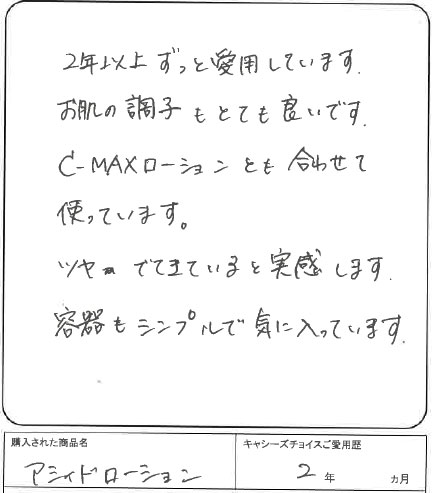 2年以上ずっと愛用しています.
お肌の調子もとても良いです.
C-MAXローションとも合わせて
使っています。
ツヤがでてきていると実感します.
容器もシンプルで気に入っています.
購入された商品名
アシィドローション
キャシーズチョイスご愛用歴
2年 カ月